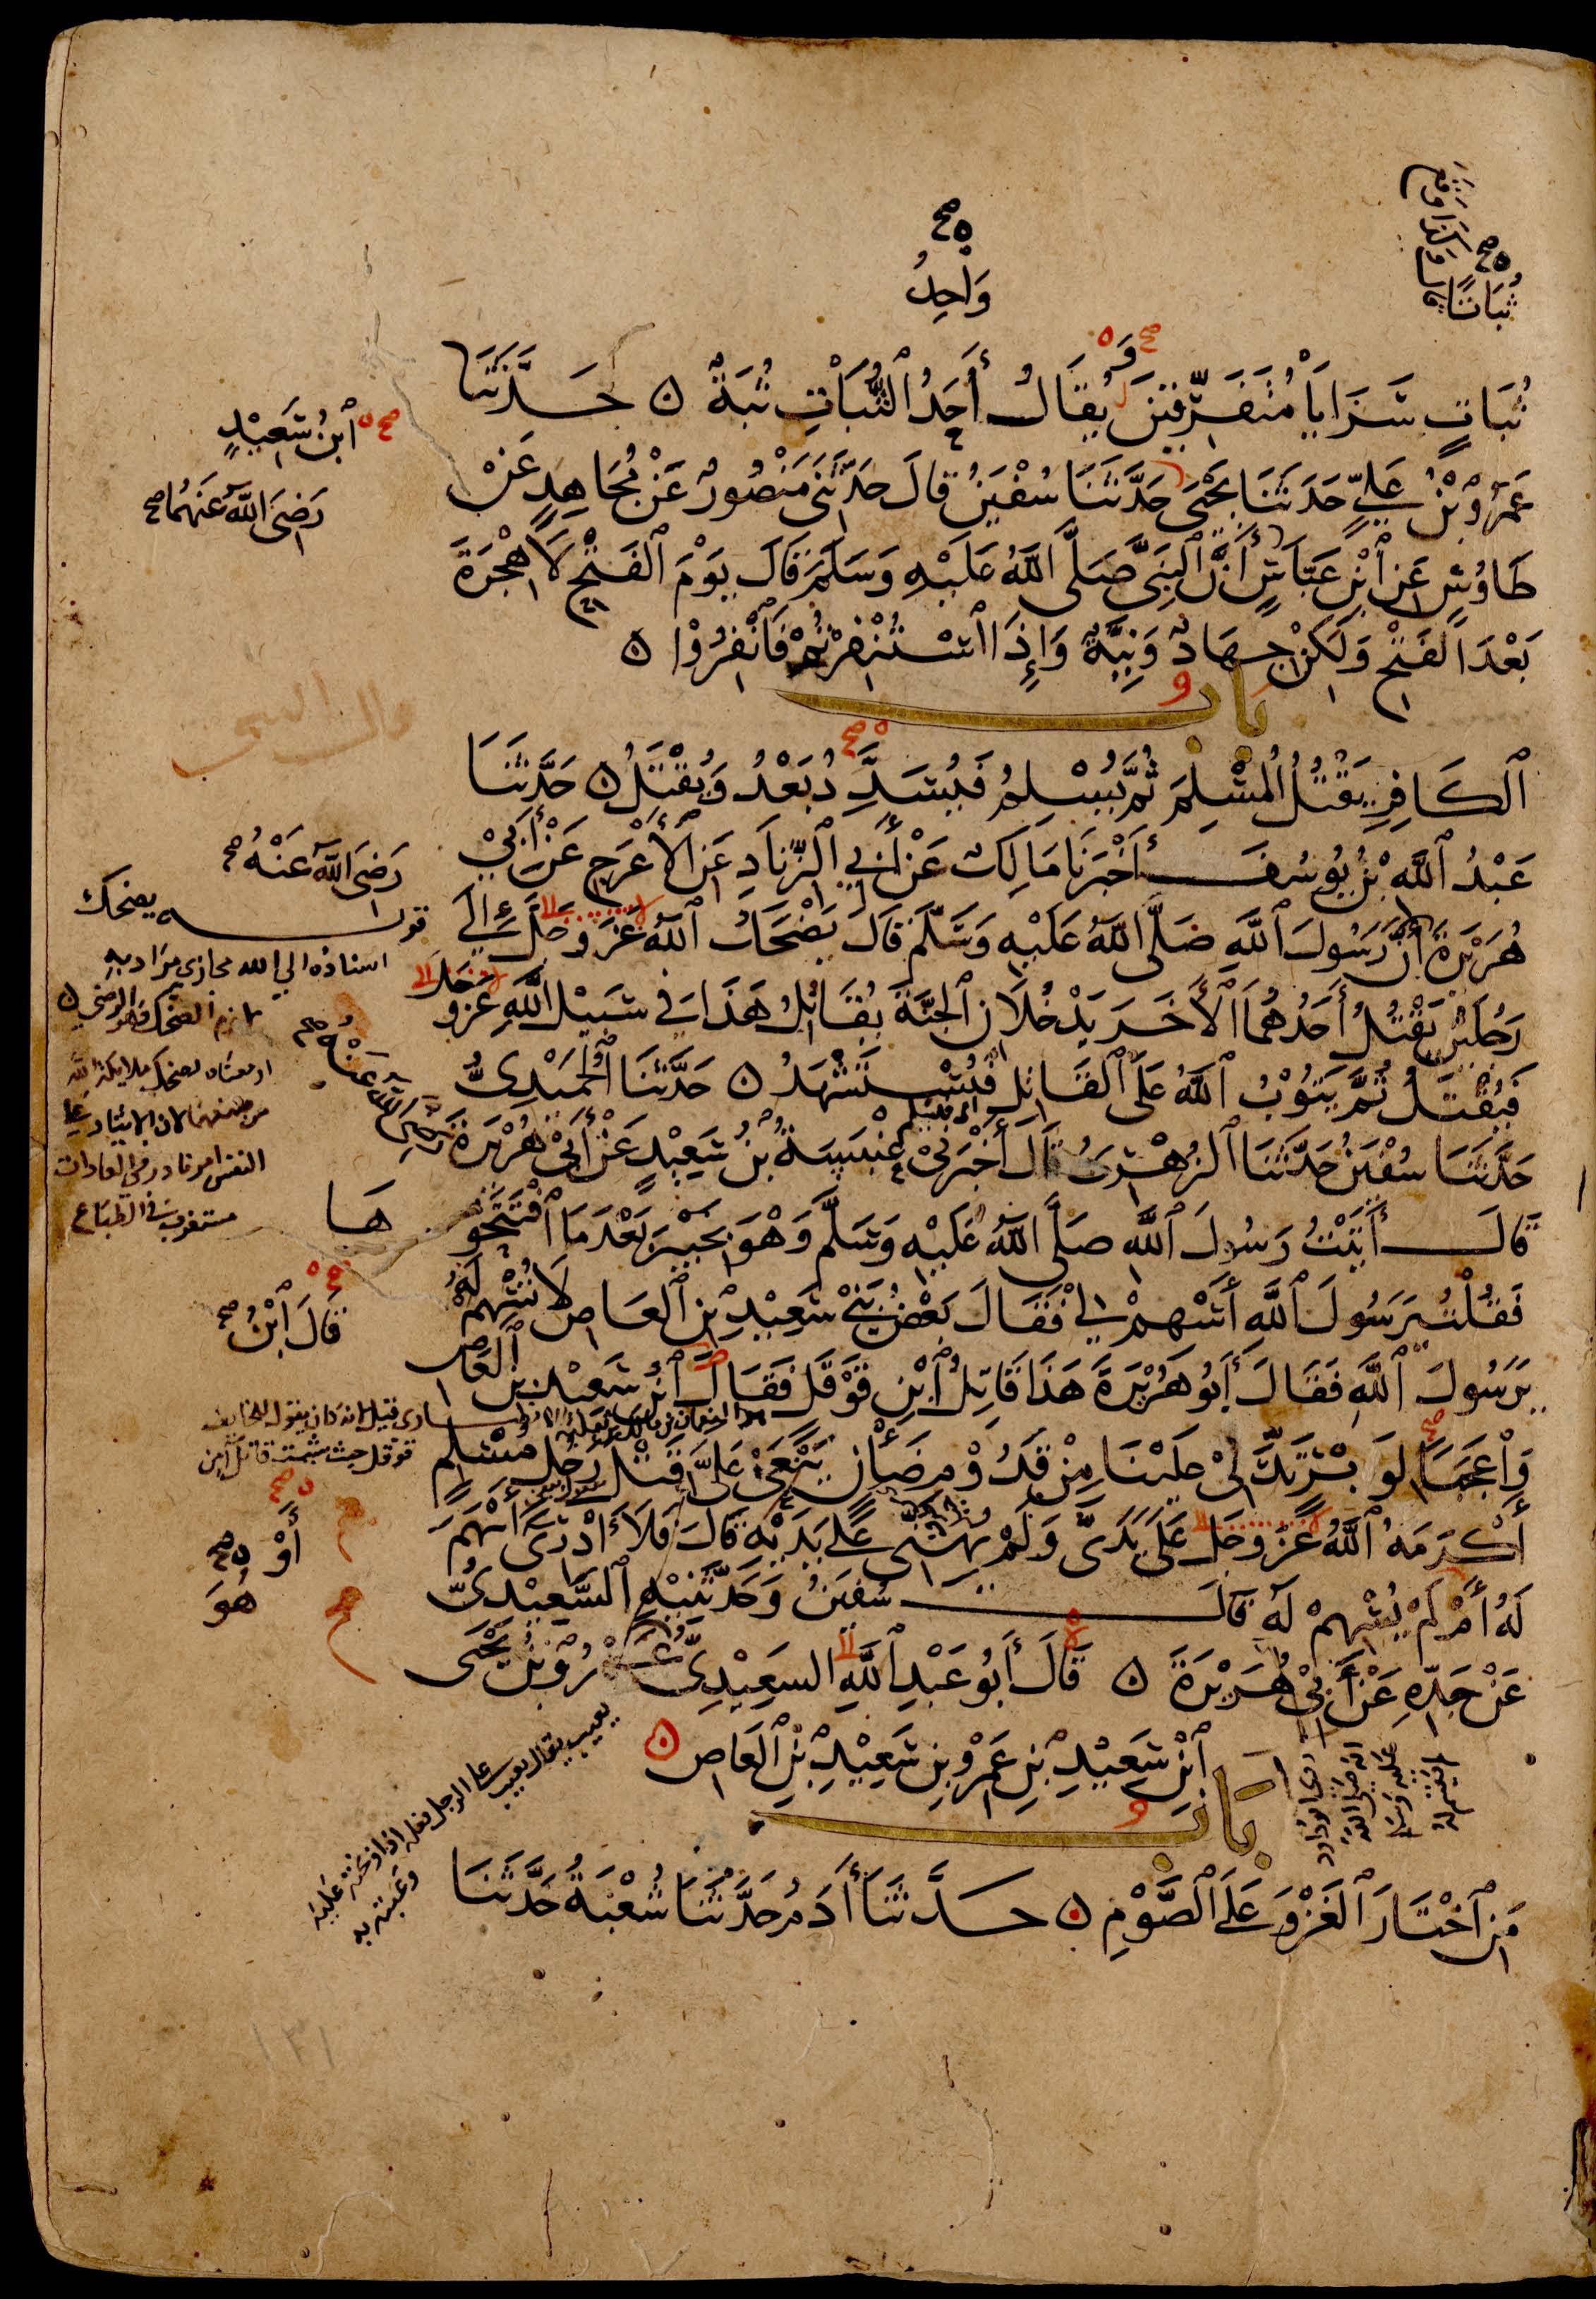 ثُبَاتًا
صح
وَاحِدُ
صح
ثُبَاتٍ سَرَايَا مُتَفَرِّقِينَ وَيُقَالُ أَحَدُ ٱلثُّبَاتِ ثُبَةٌ ه حَدَّثَنَا
عَمْرُو بْنُ عَلِيٍّ حَدَثَنَا يَحْيَى حَدَّثَنَا سُفْيَنُ قَالَ حَدَّثَنِي مَنْصُورٌ عَنْ مُجَاهِدٍ عَنْ
صح ٱبْنُ سَعِيْدٍ
رَضِيَ اللَّهُ عَنْهُمَا صح
طَاوُسٍ عَنِ ٱبْنِ عَبَّاسٍ أَنَّ ٱلنَّبِيَّ صَلَّى اللَّهُ عَلَيْهِ وَسَلَّمَ قَالَ يَوْمَ ٱلفَتْحِ لَا هِجْرَةَ
بَعْدَ الفَتْحِ وَلَكِنْ جِهَادٌ وَنِيَّةٌ وَإِذَا ٱسْتُنْفِرْتُمْ فَٱنْفِرُوْا ه
بَابُ
ٱلْكَافِرِ يَقْتُلُ ٱلمُسْلِمَ ثُمَّ يُسْلِمُ فَيُسَدِّدُ بَعْدُ وَيُقْتَلُ ه حَدَّثَنَا
عَبْدُ ٱللَّهِ بْنُ يُوسُفَ أَخْبَرَنَا مَالِكٌ عَنْ أَبِي ٱلزِّنَادِ عَنِ ٱلأَعْرَجِ عَنْ أَبِيْ
رَضِيَ اللَّهُ عَنْهُ صح
هُرَيْرَةَ أَنَّ رَسُولَ ٱللَّهِ صَلَّى اللَّهُ عَلَيْهِ وَسَلَّمَ قَالَ يَضْحَكُ ٱللَّهُ عَزَّ وَجَلَّ إِلَى
رَجُلَيْنِ يَقْتُلُ أَحَدُهُمَا ٱلأَخَرَ يَدْخُلَانِ ٱلجَنَّةَ يُقَاتِلُ هَذَا فِي سَبِيْلِ اللَّهِ عَزَّ وَجَلَّ
فَيُقْتَلُ ثُمَّ يَتُوْبُ ٱللَّهُ عَلَى ٱلقَاتِلِ فَيُسْتَشْهَدُ ه حَدَّثَنَا ٱلْحُمَيْدِيُّ
أي فيسلم
حَدَّثَنَا سُفْيَنُ حَدَّثَنَا ٱلزُهْرِيُّ قَالَ أَخْبَرَنِيْ عَنْبَسَةُ بْنُ سَعِيْدٍ عَنْ أَبِيْ هُرَيْرَةَ
رَضِيَ اللَّهُ عَنْهُ صح
قَالَ أَتَيْتُ رَسُولَ ٱللَّهِ صَلَّى اللَّهُ عَلَيْهِ وَسَلَّمَ وَهْوَ بِخَيْبَرَ بَعْدَ مَا ٱفْتَتَحُو
هَا
فَقُلْتُ يَرَسُولَ ٱللَّهِ أَسْهِمْ لِي فَقَالَ بَعْضُ بَنِيْ سَعِيْدِ بْنِ ٱلعَاصِ لَا تُسْهِمْ لَهُ
يَرَسُولَ ٱللَّهِ فَقَالَ أَبُو هُرَيْرَةَ هَذَا قَاتِلُ ٱبْنِ قَوْقَلٍ فَقَالَ ٱبْنُ سَعِيْدِ بْنِ ٱلعَاصِ
قَالَ ٱبْنُ صح
وَٱعَجَبًا لِوَبْرٍ تَدَلَّى عَلَيْنَا مِنْ قَدُوْمِ ضَأْنٍ يَنْعَىْ عَلَيَّ قَتْلَ رَجُلٍ مُسْلِمٍ
أَكْرَمَهُ ٱللَّهُ عَزَّ وَجَلَّ عَلَى يَدَيَّ وَلَمْ يُهِنِّي عَلَى يَدَيْهِ قَالَ فَلَا أَدْرِىْ أَسْهَمَ
أَوْ صح
لَهُ أَمْ لَمْ يُسْهِمْ لَهُ قَالَ سُفيَنُ وَحَدَّثَنِيْهِ ٱلسَّعِيْدِيُّ
هُوَ
عَنْ جَدِّهِ عَنْ أَبِيْ هُرَيْرَةَ ه قَالَ أَبُو عَبْدِ ٱللَّهِ السَعِيْدِيُّ عَمْرُو بْنُ يَحْيَى
ٱبْنِ سَعِيْدِ بْنِ عَمْرِو بْنِ سَعِيْدِ بْنِ ٱلعَاصِ ه
بَابُ
مَنِ ٱخْتَارَ ٱلغَزْوَ عَلَى ٱلصَّوْمِ ه حَدَّثَنَا أَدَمُ حَدَّثَنَا شُعْبَةُ حَدَّثَنَا
قوله يضحك
اسناده الي الله مجازي مراد به
لازم الضحك وهو الرضي ه
او معناه يضحك ملايكة الله
النفس امر نادر في العادات
مستغرب في الطباع
١٣١